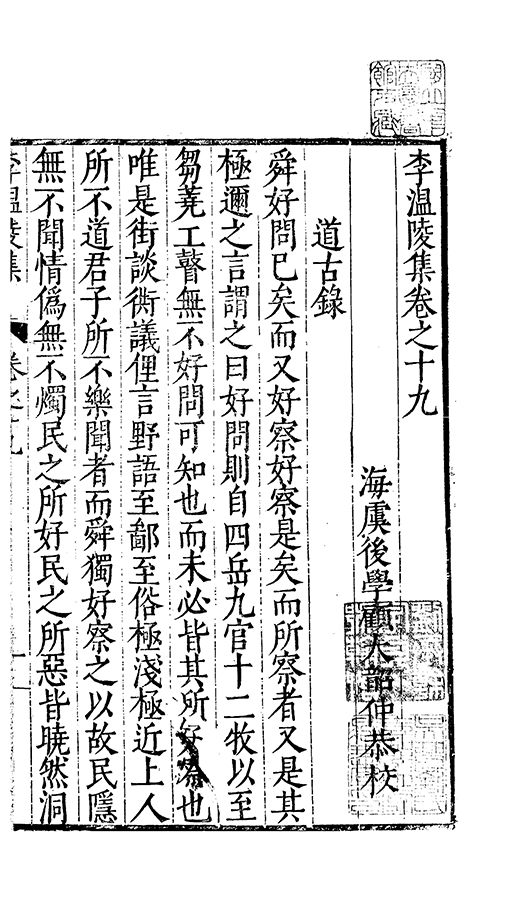 李温陵集卷之十九
海虞後學顧大韶仲恭校
道古錄
舜好問已矣而又好察好察是矣而所察者又是其
極邇之言謂之曰好問則自四岳九官十二牧以至
芻蕘工瞽無不好問可知也而未必皆其所好察也
唯是街談衖議俚言野語至鄙至俗極淺極近上人
所不道君子所不樂聞者而舜獨好察之以故民隱
無不聞情僞無不燭民之所好民之所惡皆曉然洞
李温陵集 卷之十九